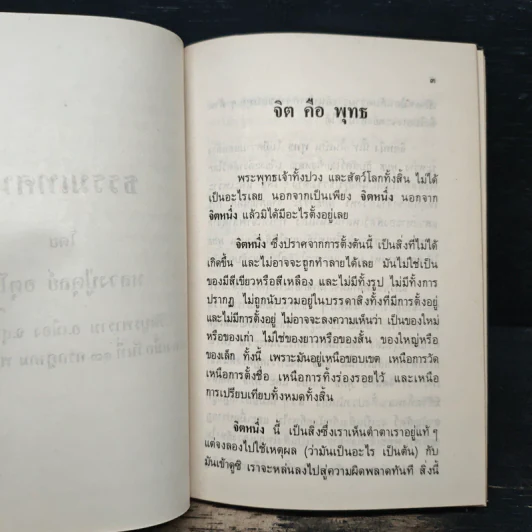 ๓
จิต คือ พุทธ
พระพุทธเจ้าทั้งปวง และสัตว์โลกทั้งสิ้น ไม่ได้
เป็นอะไรเลย นอกจากเป็นเพียง จิตหนึ่ง นอกจาก
จิตหนึ่ง แล้วมิได้มีอะไรตั้งอยู่เลย
จิตหนึ่ง ซึ่งปราศจากการตั้งต้นนี้ เป็นสิ่งที่ไม่ได้
เกิดขึ้น และไม่อาจจะถูกทำลายได้เลย มันไม่ใช่เป็น
ของมีสีเขียวหรือสีเหลือง และไม่มีทั้งรูป ไม่มีทั้งการ
ปรากฏ ไม่ถูกนับรวมอยู่ในบรรดาสิ่งทั้งที่มีการตั้งอยู่
และไม่มีการตั้งอยู่ ไม่อาจจะลงความเห็นว่า เป็นของใหม่
หรือของเก่า ไม่ใช่ของยาวหรือของสั้น ของใหญ่หรือ
ของเล็ก ทั้งนี้ เพราะมันอยู่เหนือขอบเขต เหนือการวัด
เหนือการตั้งชื่อ เหนือการทิ้งร่องรอยไว้ และเหนือ
การเปรียบเทียบทั้งหมดทั้งสิ้น
จิตหนึ่ง นี้ เป็นสิ่งซึ่งเราเห็นตำตาเราอยู่แท้ ๆ
แต่จงลองไปใช้เหตุผล (ว่ามันเป็นอะไร เป็นต้น) กับ
มันเข้าดูซิ เราจะหล่นลงไปสู่ความผิดพลาดทันที สิ่งนี้